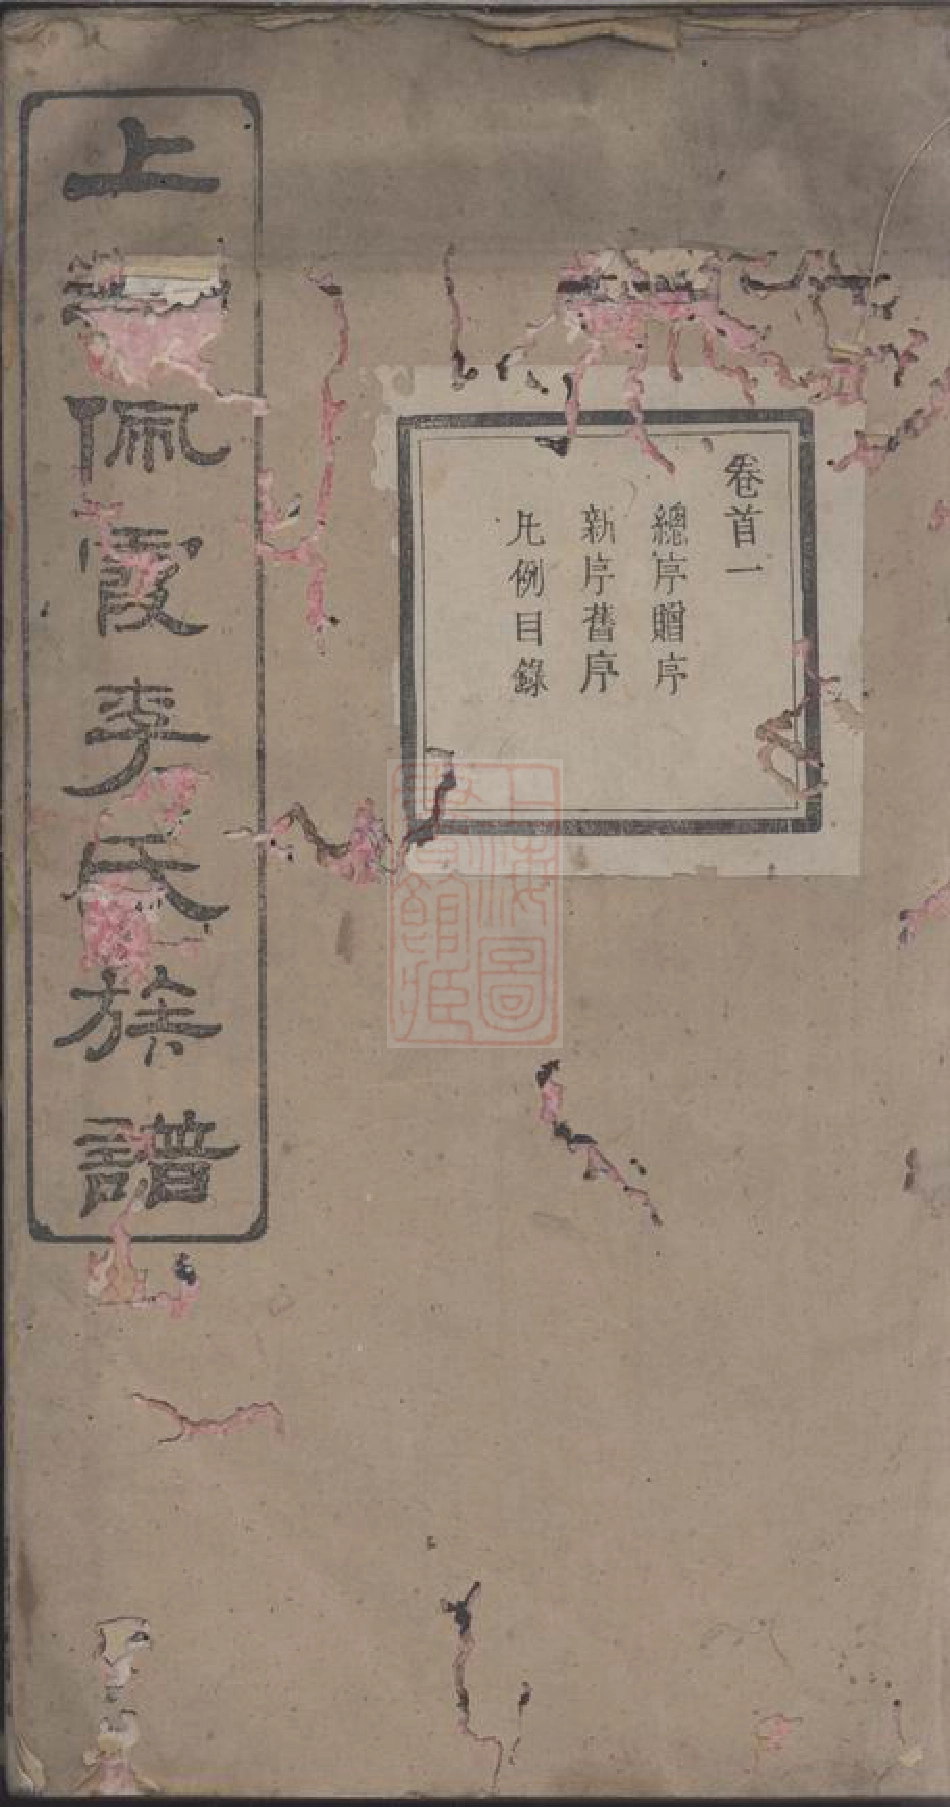 卷首一
總序贈序
新序舊序
凡例目錄
上
佩霞李氏族譜
上海圖
書館藏